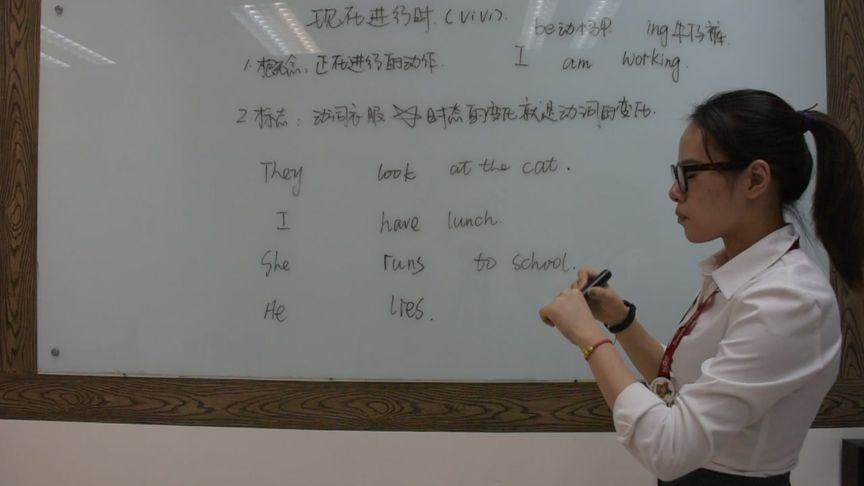 现在进行时.(vivi).
be动词 ing牛仔裤.
1.概念:正在进行的动作. I am working.
2.标志:动词衣服 时态的变化就是动词的变化.
They look at the cat.
I have lunch.
She runs to school.
He lies.